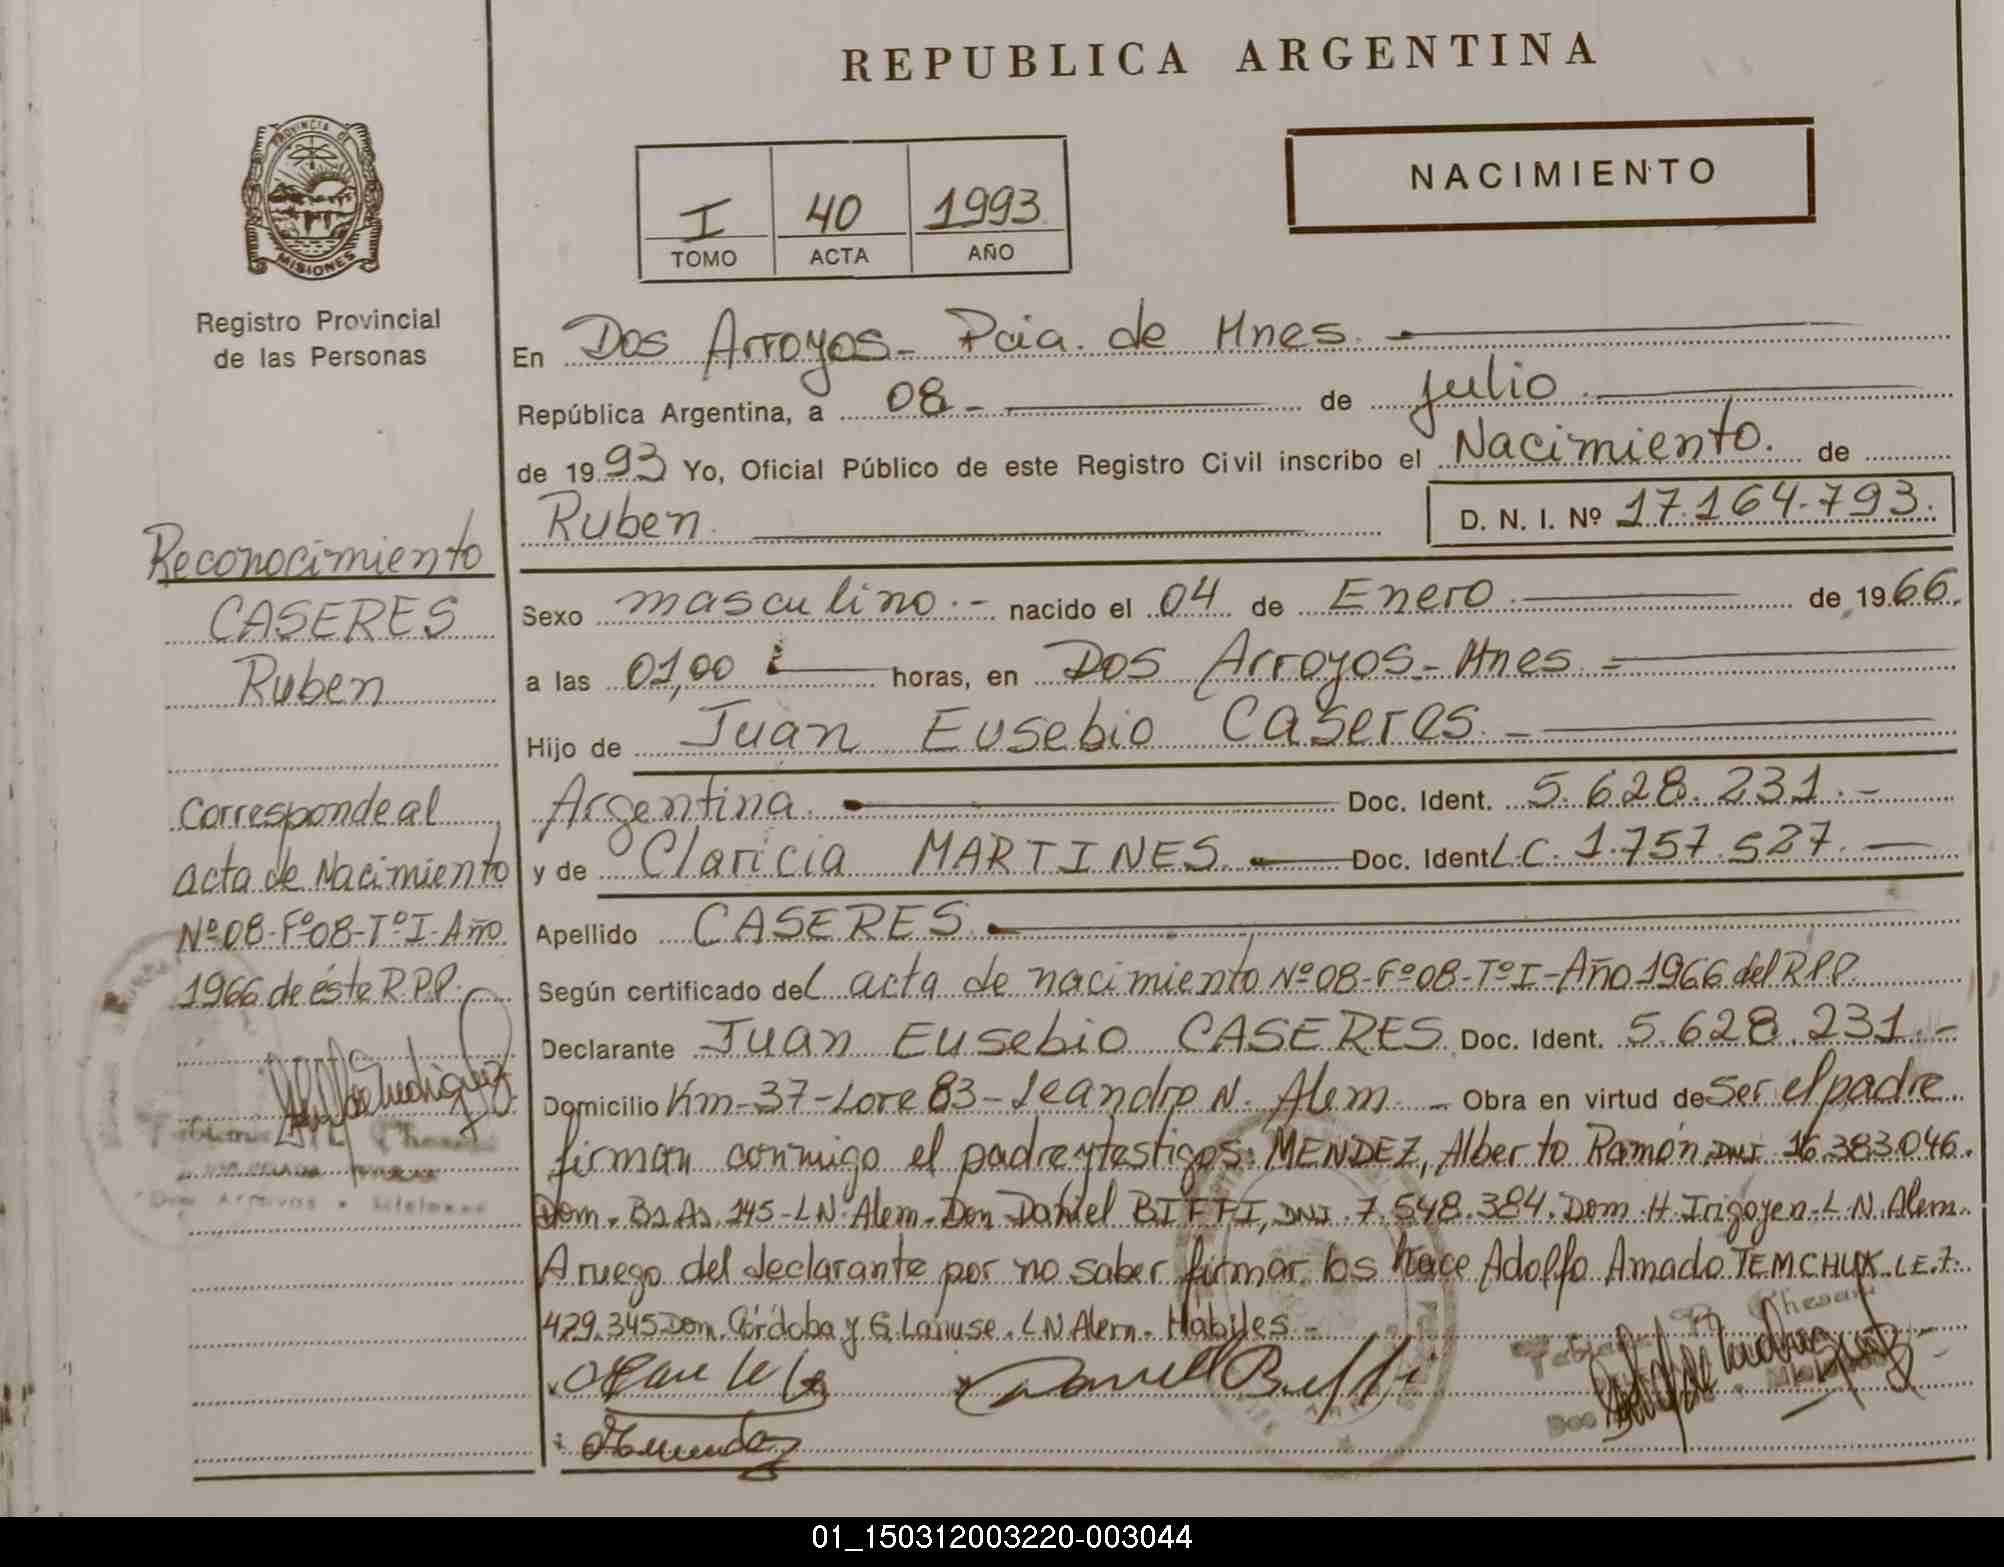 REPUBLICA ARGENTINA
NACIMIENTO
I 40 1993
TOMO ACTA AÑO
PROVINCIA DE
MISIONES
Registro Provincial
de las Personas
Reconocimiento
CASERES
Ruben
Corresponde al
acta de Nacimiento
Nº08-Fº08-TºI-Año
1966 de éste R.P.P.
En Dos Arroyos- Pcia. de Mnes.
República Argentina, a 08- de julio
de 1993 Yo, Oficial Público de este Registro Civil inscribo el Nacimiento. de
Ruben D. N. I. Nº 17.164.793.
Sexo masculino.- nacido el 04 de Enero de 1966.
a las 01,00 horas, en Dos Arroyos- Mnes.
Hijo de Juan Eusebio Caseres.
Argentina. Doc. Ident. 5.628.231.-
y de Claricia MARTINES Doc. Ident L.C. 1.757.527.
Apellido CASERES
Según certificado del acta de nacimiento Nº08-Fº08-TºI-Año 1966 del R.P.P.
Declarante Juan Eusebio CASERES Doc. Ident. 5.628.231.-
Domicilio Km-37-Lote 83-Leandro N. Alem - Obra en virtud de Ser el padre
firman conmigo el padre y testigos: MENDEZ, Alberto Ramón, DNI 16.383.046.
Dom. Bs As. 145-L N. Alem. Don Daniel BIFFI, DNI. 7.548.384. Dom. H. Irigoyen-L N. Alem.
A ruego del declarante por no saber firmar los hace Adolfo Amado TEMCHUK. L.E. 7.
429.345 Dom. Córdoba y G. Lanuse. L N Alem. Hábiles-
Daniel Biffi
01_150312003220-003044